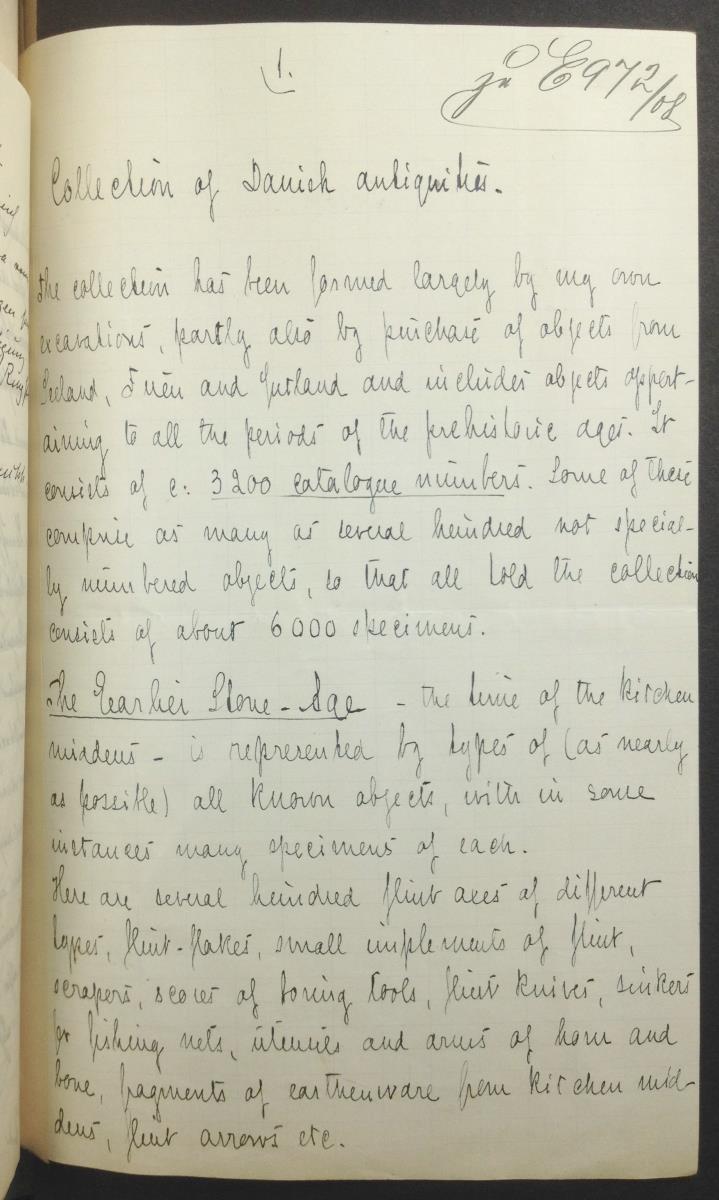 1.
zu E972/08
Collection of Danish antiquities.
The collection has been formed largely by my own
excavations, partly also by purchase of objects from
Seeland, Fuen and Jutland and includes objects appert-
aining to all the periods of the prehistoric ages. It
consists of c: 3200 catalogue numbers. Some of these
comprise as many as several hundred not special-
ly numbered objects, so that all told the collection
consists of about 6000 specimens.
The Earlier Stone-Age - the time of the kitchen
middens - is represented by types of (as nearly
as possible) all known objects, with in some
instances many specimens of each.
Here are several hundred flint axes of different
types, flint-flakes, small implements of flint,
scrapers, scores of boring tools, flint knives, sinkers
for fishing nets, utensils and arms of horn and
bone, fragments of earthenware from kitchen mid-
dens, flint arrows etc.